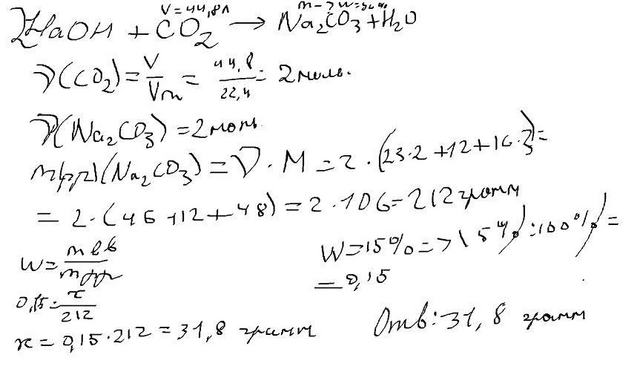 V=44,8л
2NaOH + CO2 → Na2CO3 + H2O
ν(CO2) = V/Vm = 44,8/22,4 = 2 моль.
ν(Na2CO3) = 2 моль
m(рр)(Na2CO3) = ν · M = 2 · (23·2 + 12 + 16·3) =
= 2 · (46 + 12 + 48) = 2 · 106 = 212 грамм
W = mвв/mрр
W = 15% => 15% : 100% =
= 0,15
0,15 = x/212
x = 0,15 · 212 = 31,8 грамм
Отв: 31,8 грамм